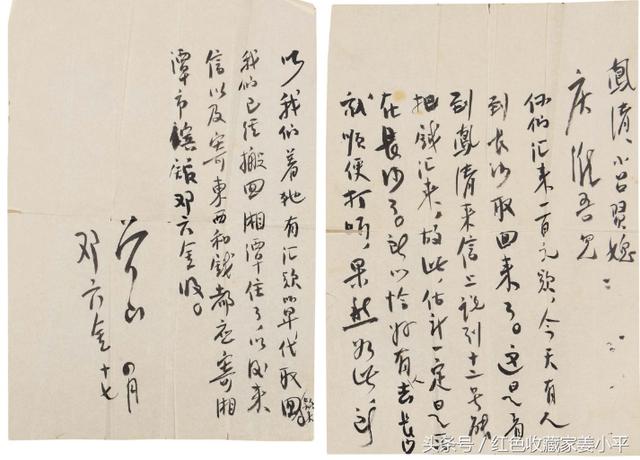 凤清、小吕贤媳
庆维吾儿
你们汇来一百元款，今天有人
到长沙取回来了。这是看
到凤清来信上说到十二号确
把钱汇来，故此，估计一定是
在长沙了。所以恰好有人去长沙
就顺便打听，果然如此，所
以我们着他有汇款小単代取回
我们已经搬回湘潭市住了，以后来
信以及寄东西和钱都应寄湘
潭市镇邓六金收。
四月
邓六金 十七
头条号／红色收藏家姜小平